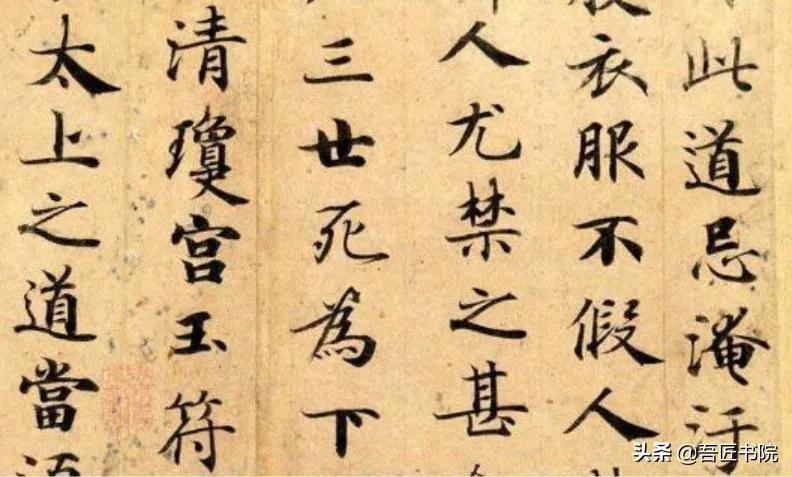 此道忌淹汙
衣服不假人
人尤禁之甚
三世死為下
清瓊宮玉符
太上之道當
头条 @吾匠书院